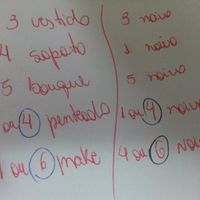 3 vestido
4 sapato
5 bouque
ou 4 penteado
1 ou 6 make
3 noivo
1 noivo
5 noivo
1 ou 4 noiv
4 ou 6 nov